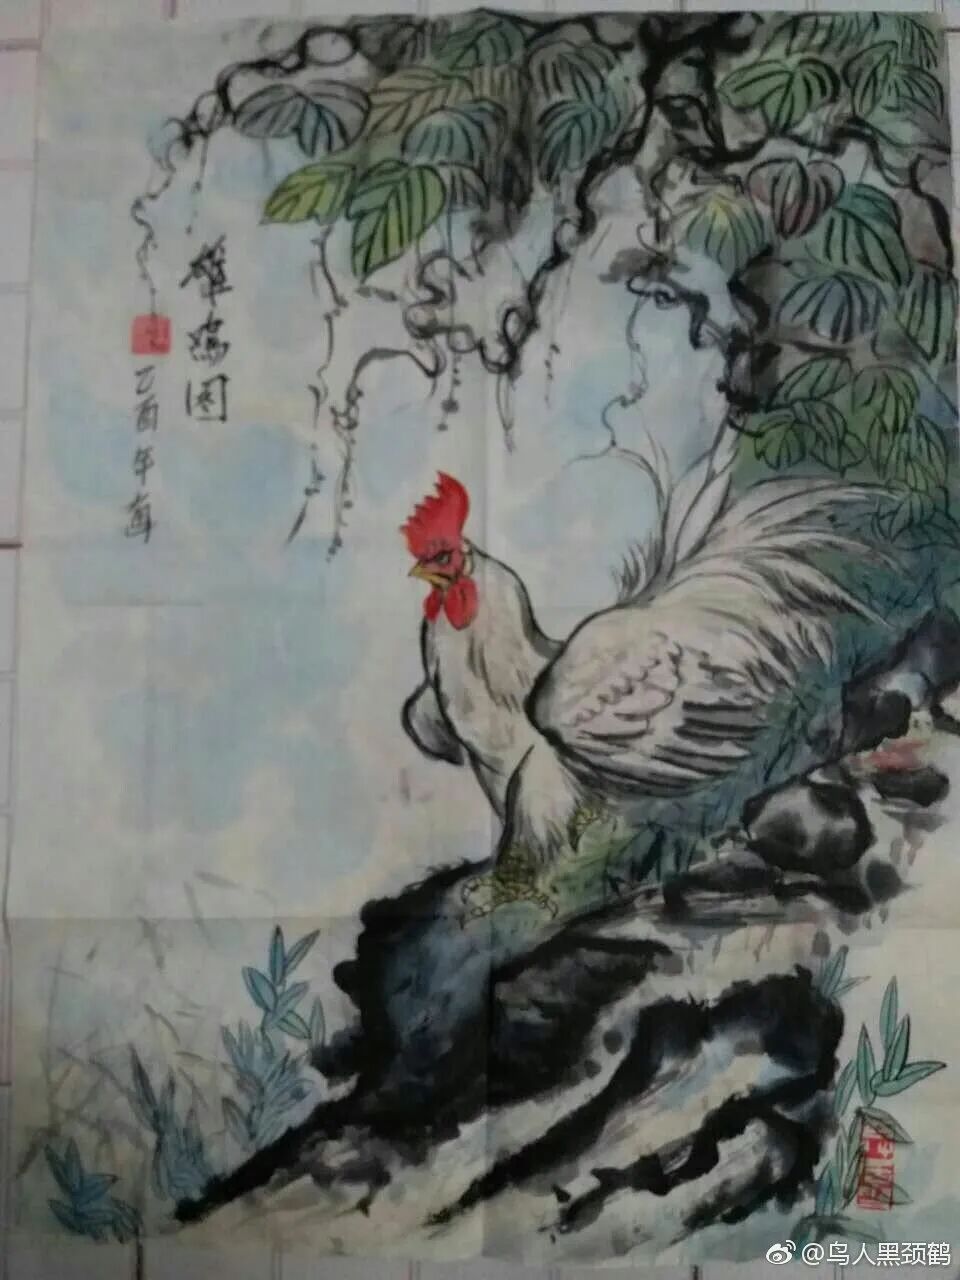 雄鸡图
乙酉年画
@鸟人黑颈鹤